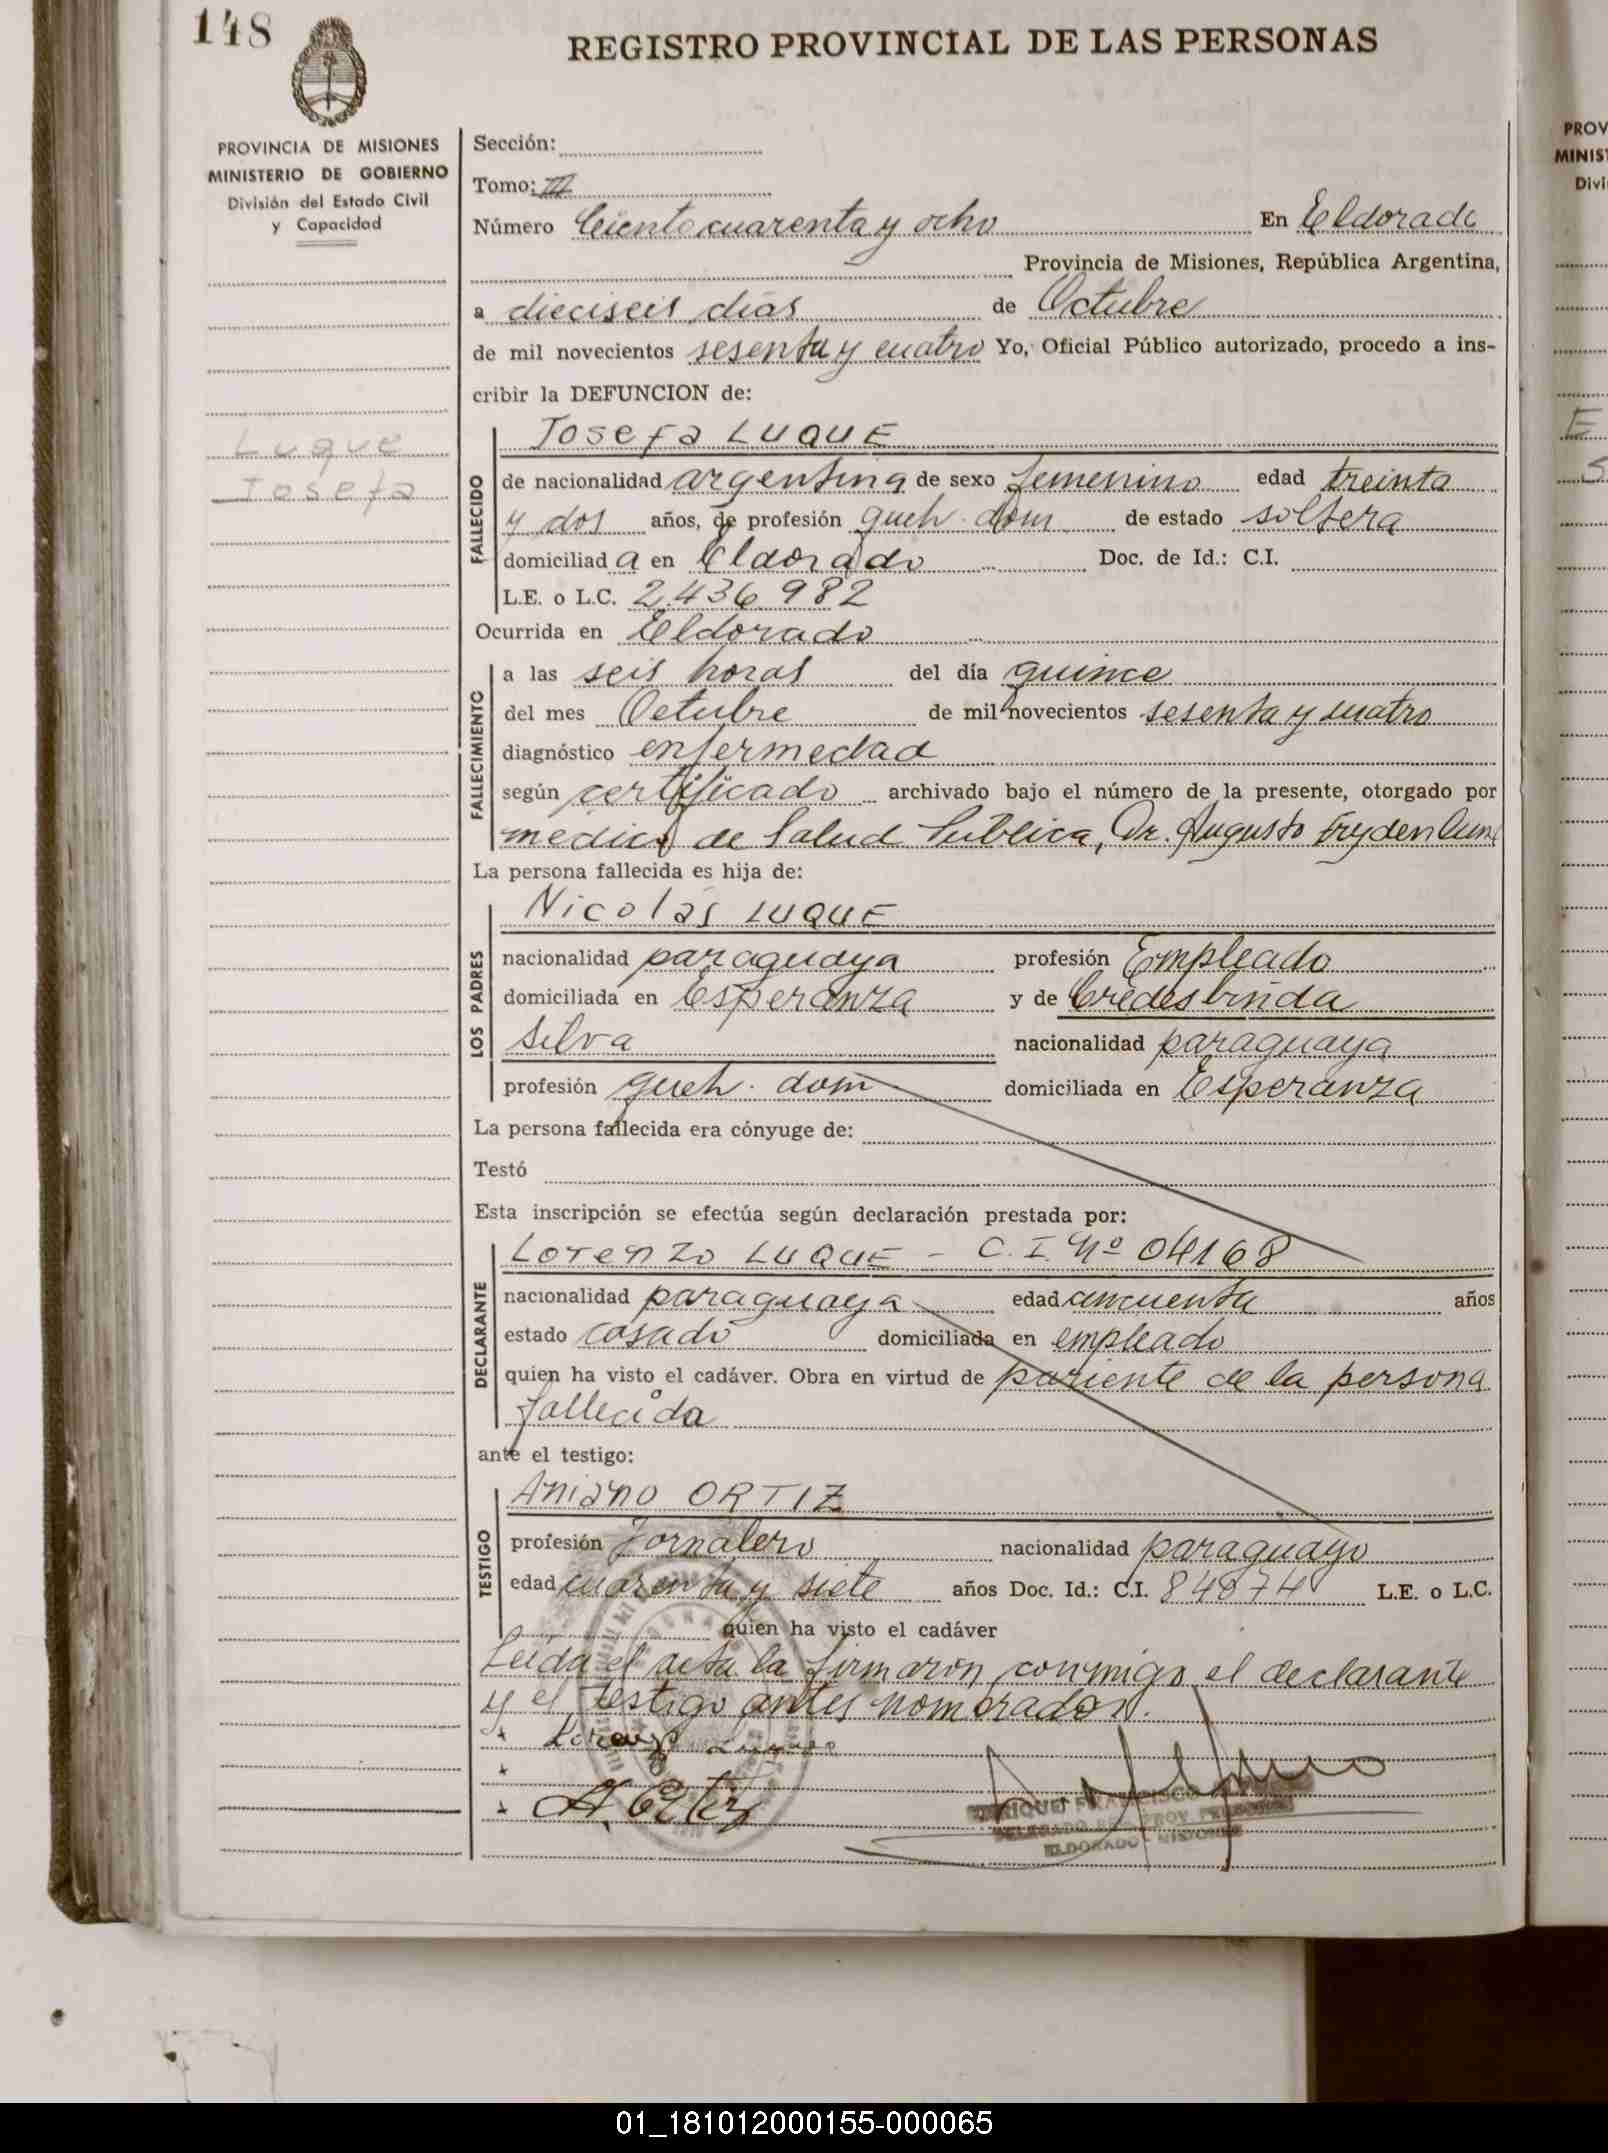 148
REGISTRO PROVINCIAL DE LAS PERSONAS
PROVINCIA DE MISIONES
MINISTERIO DE GOBIERNO
División del Estado Civil
y Capacidad
Luque
Josefa
Sección:
Tomo: III
Número Ciento cuarenta y ocho En Eldorado
Provincia de Misiones, República Argentina,
a dieciseis días de Octubre
de mil novecientos sesenta y cuatro Yo, Oficial Público autorizado, procedo a ins-
cribir la DEFUNCION de:
FALLECIDO
Josefa LUQUE
de nacionalidad argentina de sexo femenino edad treinta
y dos años, de profesión queh. dom. de estado soltera
domiciliad a en Eldorado Doc. de Id.: C.I.
L.E. o L.C. 2.436.982
Ocurrida en Eldorado
FALLECIMIENTO
a las seis horas del día quince
del mes Octubre de mil novecientos sesenta y cuatro
diagnóstico enfermedad
según certificado archivado bajo el número de la presente, otorgado por
médico de Salud Pública, Dr. Augusto
La persona fallecida es hija de:
LOS PADRES
Nicolás LUQUE
nacionalidad paraguaya profesión Empleado
domiciliada en Esperanza y de
Silva nacionalidad paraguaya
profesión queh. dom domiciliada en Esperanza
La persona fallecida era cónyuge de:
Testó
Esta inscripción se efectúa según declaración prestada por:
DECLARANTE
Lorenzo LUQUE - C.I. Nº 04168
nacionalidad paraguaya edad cincuenta años
estado casado domiciliada en empleado
quien ha visto el cadáver. Obra en virtud de pariente de la persona
fallecida
ante el testigo:
TESTIGO
Aniano ORTIZ
profesión Jornalero nacionalidad paraguayo
edad cuarenta y siete años Doc. Id.: C.I. L.E. o L.C.
quien ha visto el cadáver
Leida el acta la firmaron conmigo el declarante
y el testigo antes nombrados.
Lorenzo Luque
A. Ortiz
ELDORADO - MISIONES
PROV
MINIST
Divi
E
S
01_181012000155-000065